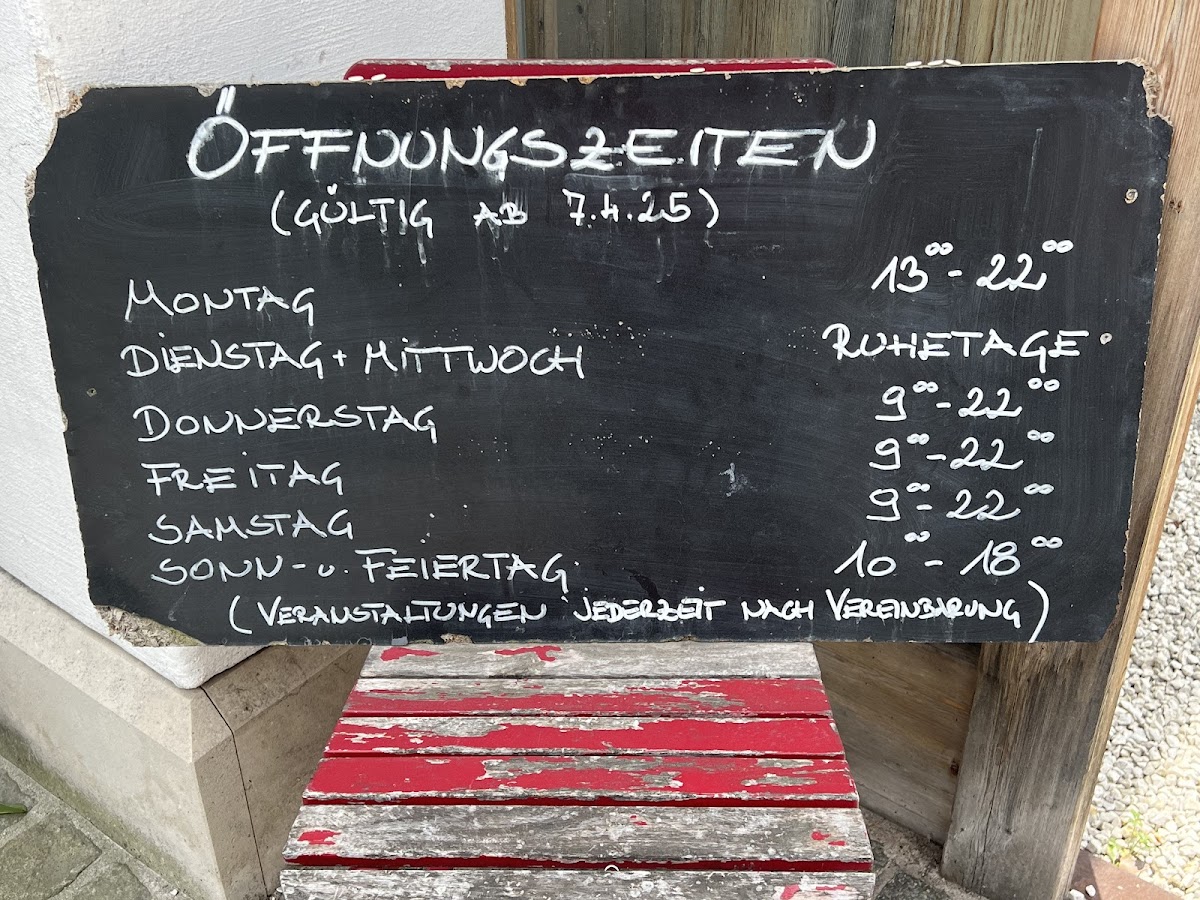 ÖFFNUNGSZEITEN
(GÜLTIG AB 7.4.25)
MONTAG 13⁰⁰ - 22⁰⁰
DIENSTAG + MITTWOCH RUHETAGE
DONNERSTAG 9⁰⁰ - 22⁰⁰
FREITAG 9⁰⁰ - 22⁰⁰
SAMSTAG 9⁰⁰ - 22⁰⁰
SONN- u. FEIERTAG 10⁰⁰ - 18⁰⁰
(VERANSTALTUNGEN JEDERZEIT NACH VEREINBARUNG)